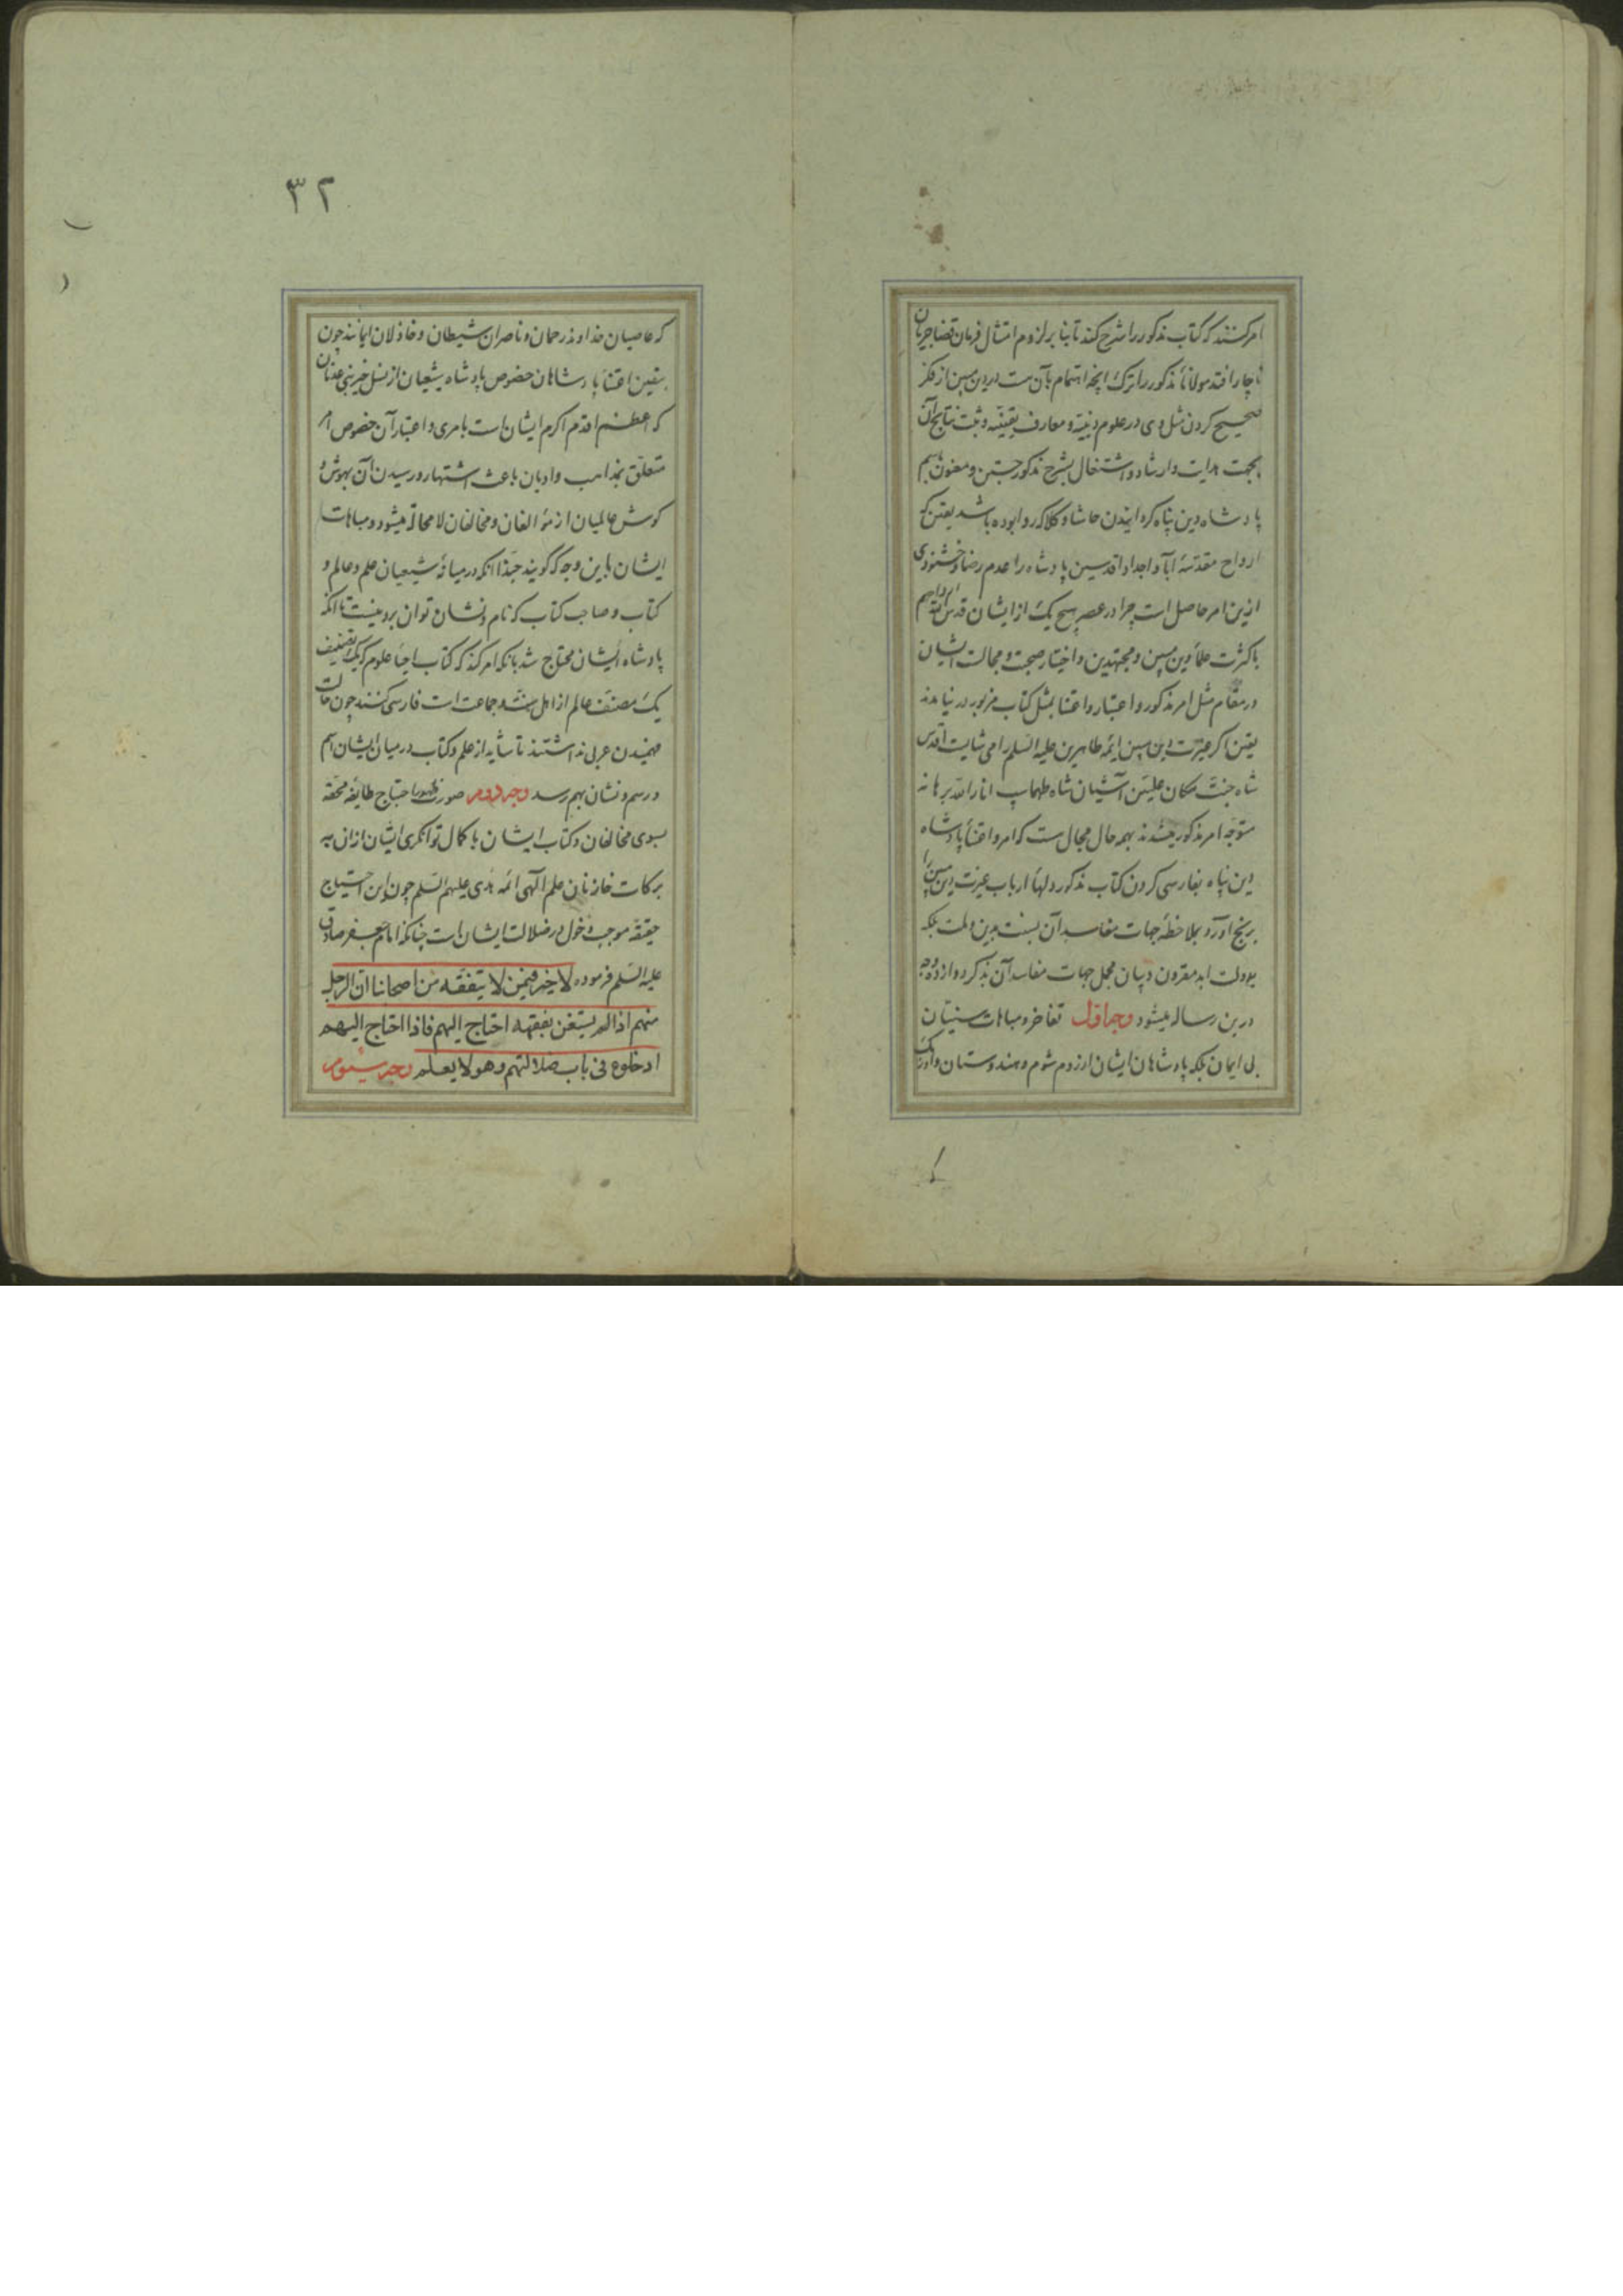 امر کنند که کتاب مذکور را شرح کند تا بنا بر لزوم امتثال فرمان قضا جریان
ناچار افتد مولانا مذکور را ترک انچه اهتمام بآن هست در دین مبین از فکر
صحیح کردن مثل وی در علوم دینیه و معارف یقینیه و ثبت نتایج آن
بجهت هدایت و ارشاد و اشتغال بشرح مذکور جستن و معنون باسم
پادشاه دین پناه کردانیدن حاشا و کلا که روا بوده باشد یقین که
ارواح مقدسهٔ آبا و اجداد اقدسین پادشاه را عدم رضا و خشنودی
ازین امر حاصل است چرا در عصر هیچ یک از ایشان قدس الله ارواحهم
با کثرت علماء دین مبین و مجتهدین و اختیار صحبت و مجالست ایشان
در مقام مثل امر مذکور و اعتبار و اعتنا بمثل کتاب مزبور در نیامدند
یقین اکر غیرت دین مبین ائمه طاهرین علیه السلم را می شایست اقدس
شاه جنت مکان علیین آشیان شاه طهماسب انار الله برهانه
متوجه امر مذکور میشدند بهمه حال مجال هست که امر و اعتناء پادشاه
دین پناه بفارسی کردن کتاب مذکور دلهاء ارباب غیرت دین مبین را
برنج آورد و بملاحظه جهات مفاسد آن نسبت بدین و ملت بلکه
بدولت ابد مقرون و بیان مجمل جهات مفاسد آن بذکر دوازده وجه
درین رساله میشود وجه اول تفاخر و مباهات سنیان
بی ایمان بلکه پادشاهان ایشان از روم شوم و هندوستان و اوزبک
۳۲
که عاصیان خداوند رحمان و ناصران شیطان و خاذلان ایمانند چون
بیقین اعتناء پادشاهان خصوص پادشاه شیعیان از نسل خیر بنی عدنان
که اعظم اقدم اکرم ایشان است بامری و اعتبار آن خصوص امر
متعلق بمذاهب و ادیان باعث اشتهار و رسیدن آن بهوش و
کوش عالمیان از مؤالفان و مخالفان لا محاله میشود و مباهات
ایشان باین وجه که کویند حبذا انکه در میانهٔ شیعیان علم و عالم و
کتاب و صاحب کتاب که نام و نشان توان برد نیست تا انکه
پادشاه ایشان محتاج شد بانکه امر کند که کتاب احیاء علوم که یک تصنیف
یک مصنف عالم از اهل سنت و جماعت است فارسی کنند چون حالت
فهمیدن عربی نداشتند تا شاید از علم و کتاب در میان ایشان اسم
و رسم و نشان بهم رسد وجه دوم صورت ظهور احتیاج طایفه محقه
بسوی مخالفان و کتاب ایشان با کمال توانکری ایشان ازان به
برکات خازنان علم الهی ائمه هدی علیهم السلم چون این احتیاج
حقیقه موجب دخول در ضلالت ایشان است چنانکه امام جعفر صادق
علیه السلم فرموده لا خیر فیمن لا یتفقه من اصحابنا ان الرجل
منهم اذا لم یستغن بفقهه احتاج الیهم فاذا احتاج الیهم
ادخلوه فی باب ضلالتهم و هو لا یعلم وجه سیوم